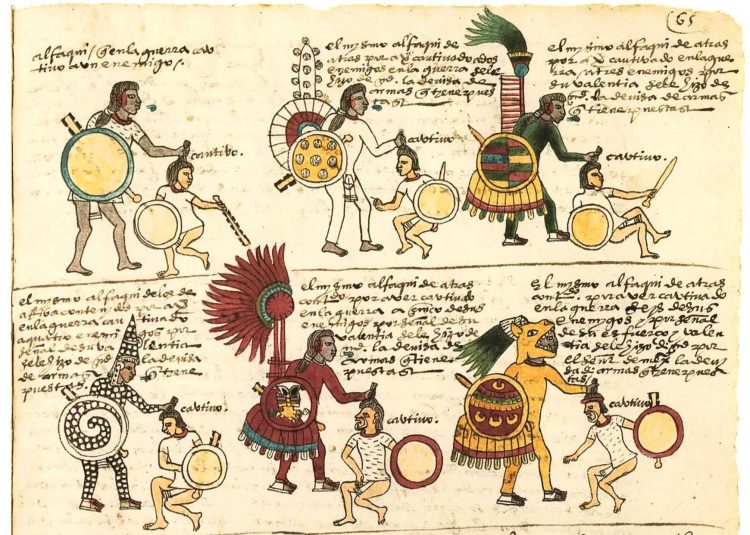 65
alfaqui / q en la guerra cau
tivo a un enemigo
cautivo.
el mysmo alfaqui de
atras por a cautivado a dos
enemigos en la guerra se le
hizo de la devisa de
armas q tiene pues
tas
cautivo
el mysmo alfaqui de atras
por q a cautivado en la gue
rra / a tres enemigos por
su valentia se le hizo de
la devisa de armas q
tiene puestas
cautivo.
el mysmo alfaqui de los de
atras conte nydo
en la guerra cau tivado
a quatro ene migos por
señal de su va lentia
se le hizo de la devisa
de armas q tiene
puestas
cautivo.
el mysmo alfaqui de atras
conto por aver cautivado
en la guerra a cinco de sus
enemigos por señal de su
valentia se le hizo de
la devisa de
armas q tiene
puestas
cautivo
el mysmo alfaqui de atras
conto por aver cautivado
en la guerra seys de sus
enemigos / por señal
de su esfuerço y valen
tia se le hizo
el señor de mexco la devi
sa de armas q tiene pues
tas
cautivo